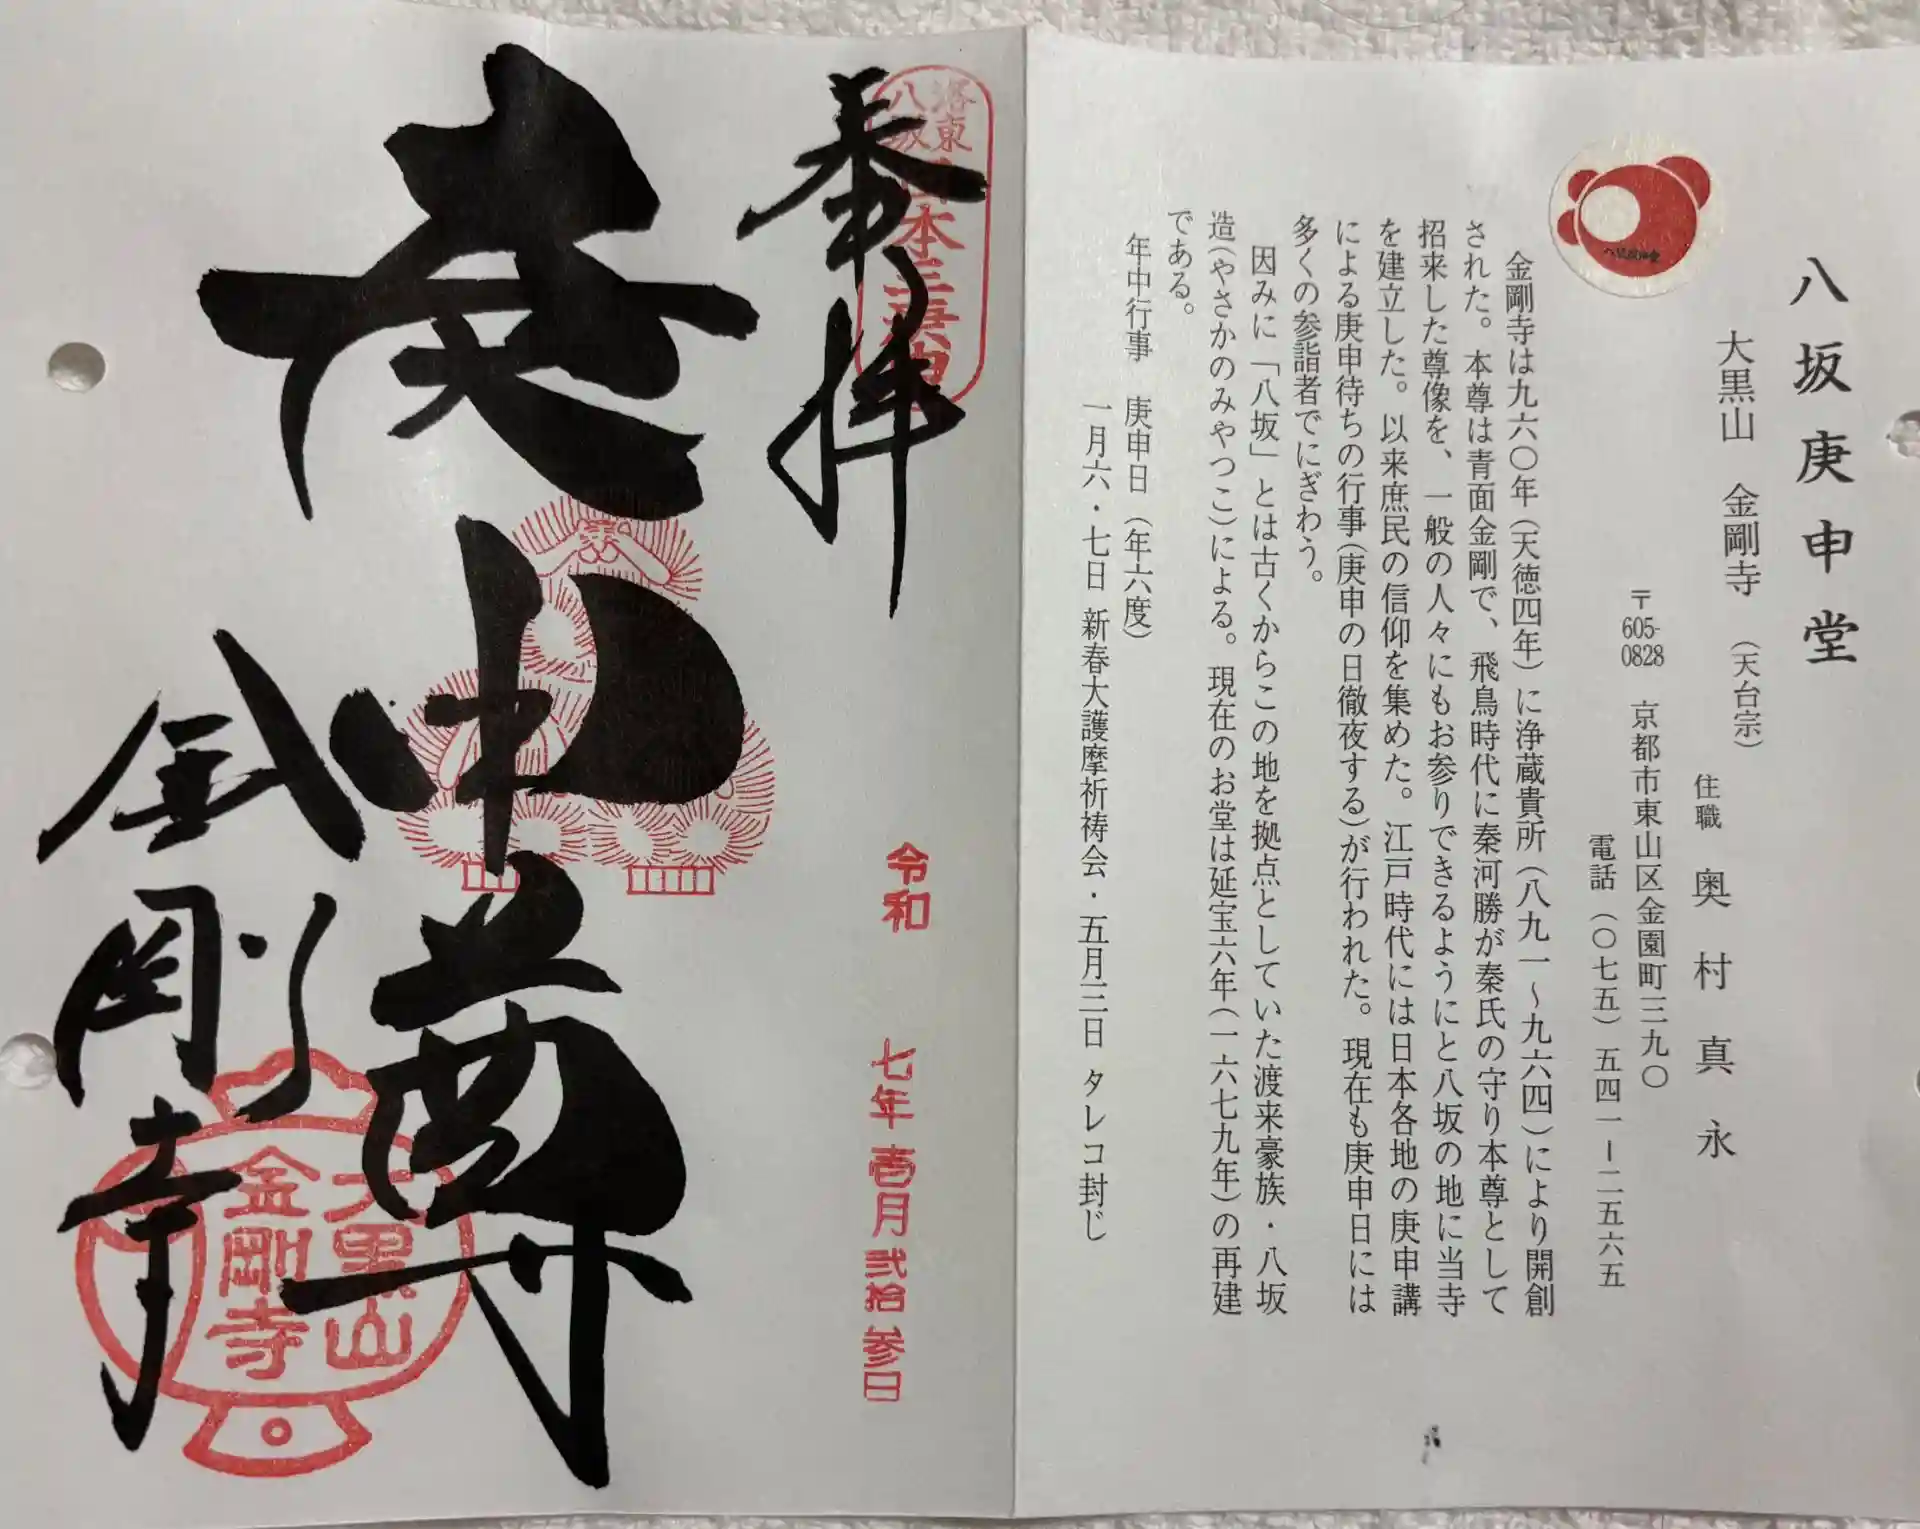 八坂庚申堂
大黒山　金剛寺　（天台宗）
住職　奥村真永
〒605-0828　京都市東山区金園町三九〇
電話（〇七五）五四一ー二五六五
八坂庚申堂
金剛寺は九六〇年（天徳四年）に浄蔵貴所（八九一〜九六四）により開創
された。本尊は青面金剛で、飛鳥時代に秦河勝が秦氏の守り本尊として
招来した尊像を、一般の人々にもお参りできるようにと八坂の地に当寺
を建立した。以来庶民の信仰を集めた。江戸時代には日本各地の庚申講
による庚申待ちの行事（庚申の日徹夜する）が行われた。現在も庚申日には
多くの参詣者でにぎわう。
因みに「八坂」とは古くからこの地を拠点としていた渡来豪族・八坂
造（やさかのみやつこ）による。現在のお堂は延宝六年（一六七九年）の再建
である。
年中行事　庚申日（年六度）
一月六・七日 新春大護摩祈祷会・五月三日 タレコ封じ
奉拝
洛東
八坂
令和　七年 壱月 弐拾 参日
庚申尊
金剛寺
大黒山
金剛寺